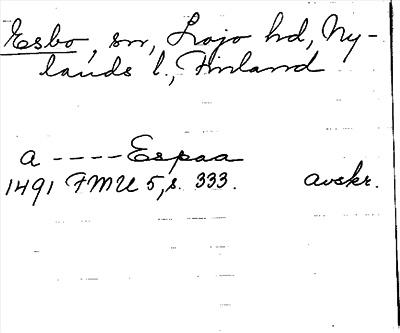 Esbo, sn, Lojo hd, Ny-
lands l., Finland
a ---- Espaa
1491 FMU 5, s. 333. avskr.